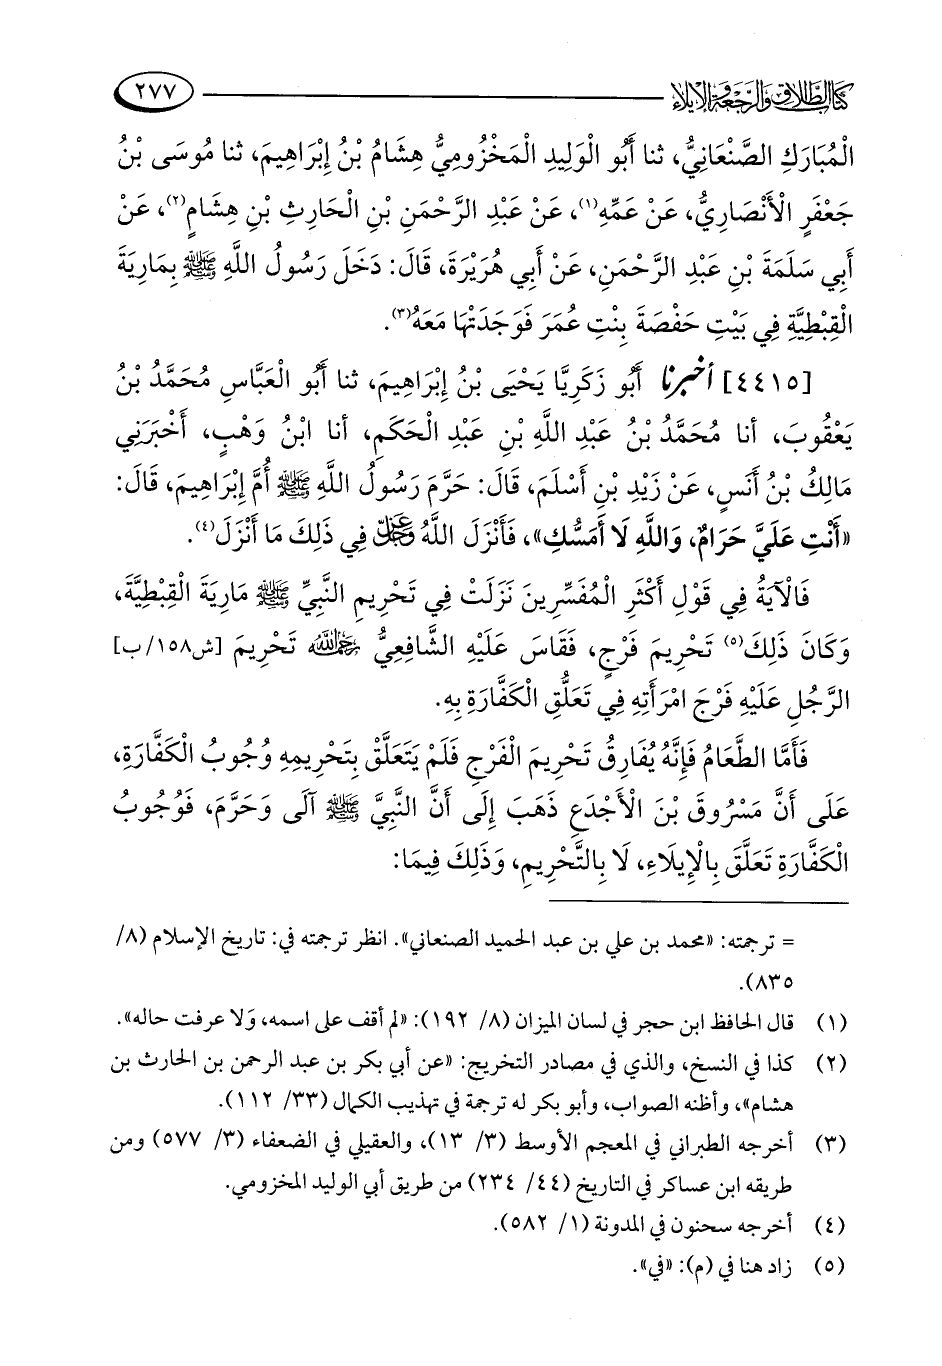 كتاب الطلاق والرجعة والإيلاء ٢٧٧
الْمُبَارَكِ الصَّنْعَانِيُّ، ثنا أَبُو الْوَلِيدِ الْمَخْزُومِيُّ هِشَامُ بْنُ إِبْرَاهِيمَ، ثنا مُوسَى بْنُ
جَعْفَرٍ الْأَنْصَارِيُّ، عَنْ عَمِّهِ(١)، عَنْ عَبْدِ الرَّحْمَنِ بْنِ الْحَارِثِ بْنِ هِشَامٍ(٢)، عَنْ
أَبِي سَلَمَةَ بْنِ عَبْدِ الرَّحْمَنِ، عَنْ أَبِي هُرَيْرَةَ، قَالَ: دَخَلَ رَسُولُ اللَّهِ ﷺ بِمَارِيَةَ
الْقِبْطِيَّةِ فِي بَيْتِ حَفْصَةَ بِنْتِ عُمَرَ فَوَجَدَتْهَا مَعَهُ(٣).
[٤٤١٥] أخبرنا أَبُو زَكَرِيَّا يَحْيَى بْنُ إِبْرَاهِيمَ، ثنا أَبُو الْعَبَّاسِ مُحَمَّدُ بْنُ
يَعْقُوبَ، أنا مُحَمَّدُ بْنُ عَبْدِ اللَّهِ بْنِ عَبْدِ الْحَكَمِ، أنا ابْنُ وَهْبٍ، أَخْبَرَنِي
مَالِكُ بْنُ أَنَسٍ، عَنْ زَيْدِ بْنِ أَسْلَمَ، قَالَ: حَرَّمَ رَسُولُ اللَّهِ ﷺ أُمَّ إِبْرَاهِيمَ، قَالَ:
«أَنْتِ عَلَيَّ حَرَامٌ، وَاللَّهِ لَا أَمَسُّكِ»، فَأَنْزَلَ اللَّهُ عَزَّ وَجَلَّ فِي ذَلِكَ مَا أَنْزَلَ(٤).
فَالْآيَةُ فِي قَوْلِ أَكْثَرِ الْمُفَسِّرِينَ نَزَلَتْ فِي تَحْرِيمِ النَّبِيِّ ﷺ مَارِيَةَ الْقِبْطِيَّةَ،
وَكَانَ ذَلِكَ(٥) تَحْرِيمَ فَرْجٍ، فَقَاسَ عَلَيْهِ الشَّافِعِيُّ رَحِمَهُ اللَّهُ تَحْرِيمَ [ش١٥٨/ب]
الرَّجُلِ عَلَيْهِ فَرْجَ امْرَأَتِهِ فِي تَعَلُّقِ الْكَفَّارَةِ بِهِ.
فَأَمَّا الطَّعَامُ فَإِنَّهُ يُفَارِقُ تَحْرِيمَ الْفَرْجِ فَلَمْ يَتَعَلَّقْ بِتَحْرِيمِهِ وُجُوبُ الْكَفَّارَةِ،
عَلَى أَنَّ مَسْرُوقَ بْنَ الْأَجْدَعِ ذَهَبَ إِلَى أَنَّ النَّبِيَّ ﷺ آلَى وَحَرَّمَ، فَوُجُوبُ
الْكَفَّارَةِ تَعَلَّقَ بِالْإِيلَاءِ، لَا بِالتَّحْرِيمِ، وَذَلِكَ فِيمَا:
= ترجمته: «محمد بن علي بن عبد الحميد الصنعاني». انظر ترجمته في: تاريخ الإسلام (٨/
٨٣٥).
(١) قال الحافظ ابن حجر في لسان الميزان (٨/ ١٩٢): «لم أقف على اسمه، ولا عرفت حاله».
(٢) كذا في النسخ، والذي في مصادر التخريج: «عن أبي بكر بن عبد الرحمن بن الحارث بن
هشام»، وأظنه الصواب، وأبو بكر له ترجمة في تهذيب الكمال (٣٣/ ١١٢).
(٣) أخرجه الطبراني في المعجم الأوسط (٣/ ١٣)، والعقيلي في الضعفاء (٣/ ٥٧٧) ومن
طريقه ابن عساكر في التاريخ (٤٤/ ٢٣٤) من طريق أبي الوليد المخزومي.
(٤) أخرجه سحنون في المدونة (١/ ٥٨٢).
(٥) زاد هنا في (م): «في».